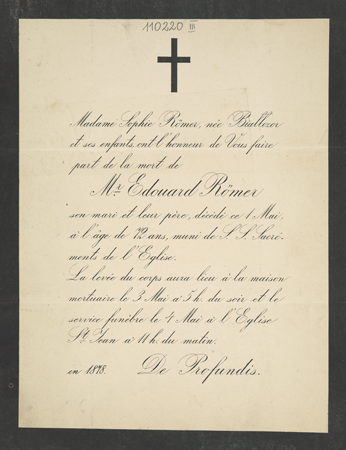 110220 III
Madame Sophie Römer, née Białłozor
et ses enfants, ont l'honneur de Vous faire
part de la mort de
Mr. Edouard Römer
son mari et leur père, décédé ce 1 Mai,
à l'âge de 72 ans, muni de S S. Sacré-
ments de l'Eglise.
La levée du corps aura lieu à la maison
mortuaire le 3 Mai à 5 h. du soir et le
service funèbre le 4 Mai à l'Eglise
St. Jean à 11 h. du matin.
en 1878. De Profundis.